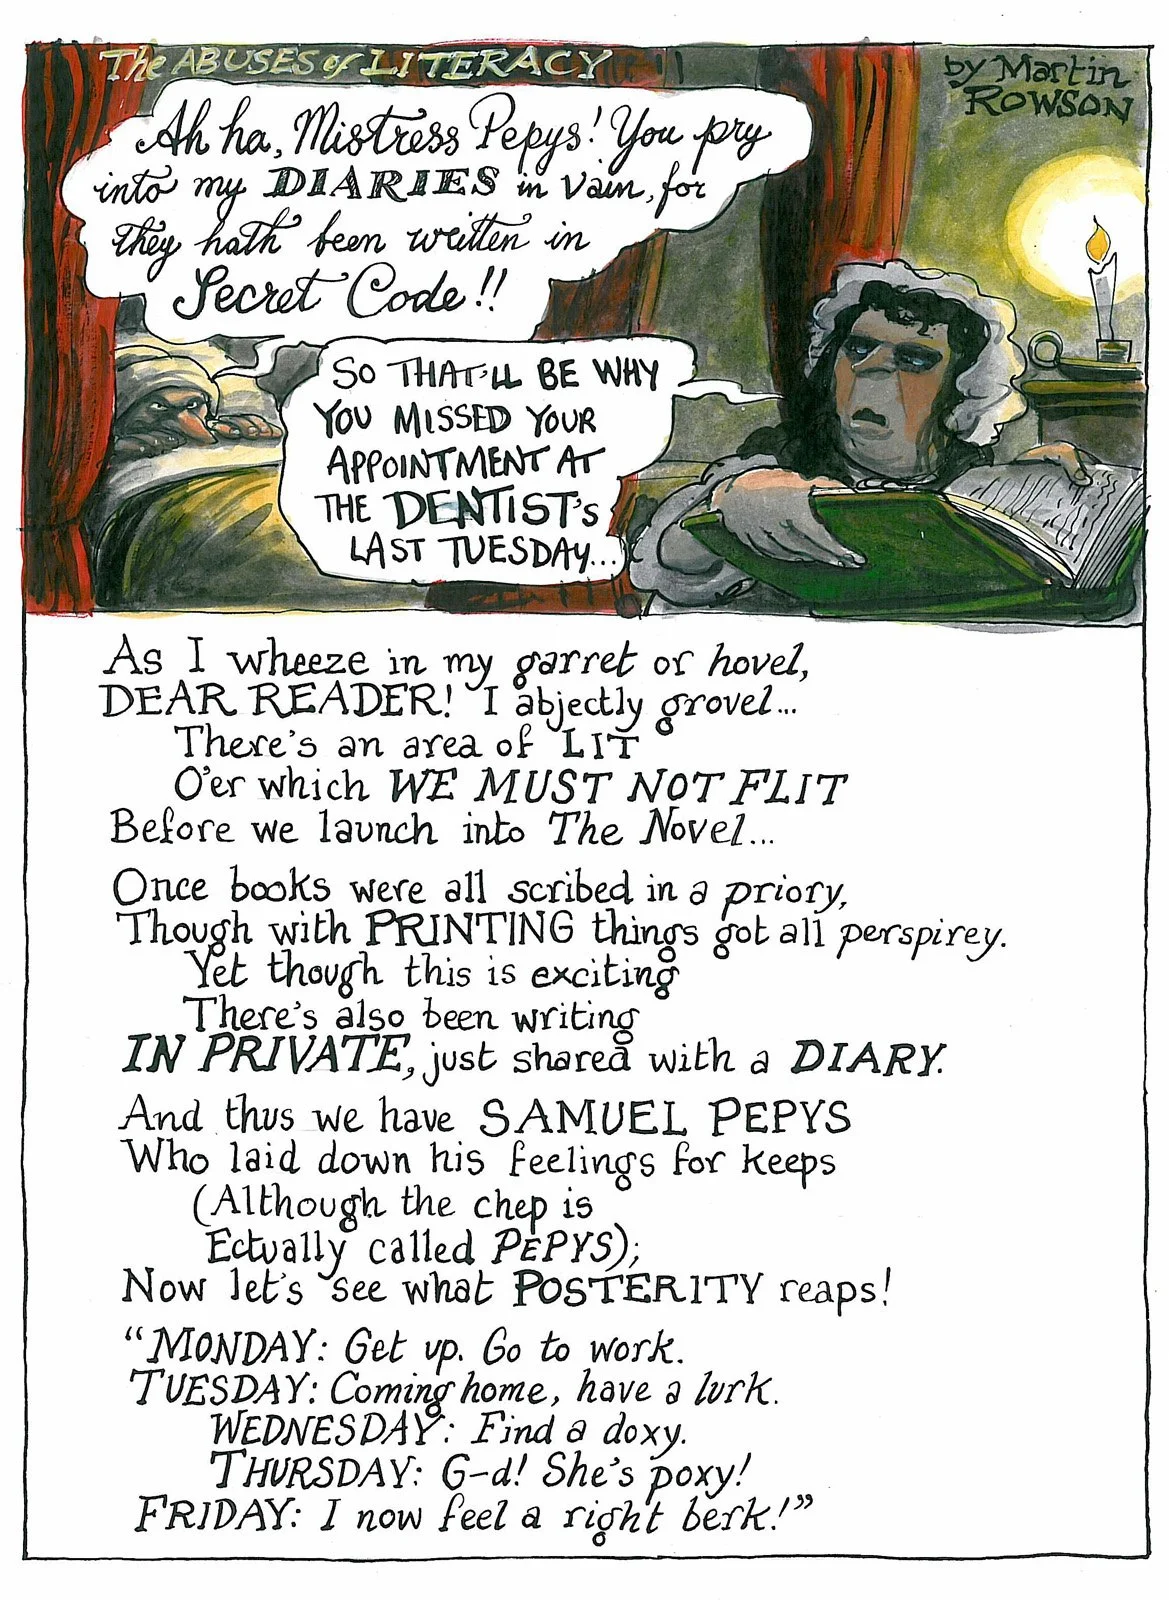 The ABUSES of LITERACY
by Martin
ROWSON
Ah ha, Mistress Pepys! You pry
into my DIARIES in vain, for
they hath been written in
Secret Code!!
SO THAT'LL BE WHY
YOU MISSED YOUR
APPOINTMENT AT
THE DENTIST'S
LAST TUESDAY...
As I wheeze in my garret or hovel,
DEAR READER! I abjectly grovel...
There's an area of LIT
O'er which WE MUST NOT FLIT
Before we launch into The Novel...
Once books were all scribed in a priory,
Though with PRINTING things got all perspirey.
Yet though this is exciting
There's also been writing
IN PRIVATE, just shared with a DIARY.
And thus we have SAMUEL PEPYS
Who laid down his feelings for keeps
(Although the chep is
Ectually called PEPYS);
Now let's see what POSTERITY reaps!
"MONDAY: Get up. Go to work.
TUESDAY: Coming home, have a lurk.
WEDNESDAY: Find a doxy.
THURSDAY: G-d! She's poxy!
FRIDAY: I now feel a right berk!"